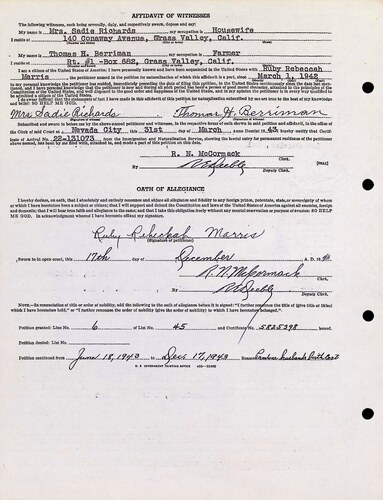 AFFIDAVIT OF WITNESSES
The following witnesses, each being severally, duly, and respectively sworn, depose and say:
My name is Mrs. Sadie Richards my occupation is Housewife
I reside at 140 Conaway Avenue, Grass Valley, Calif.
My name is Thomas H. Berriman my occupation is Farmer
I reside at Rt. #1 -Box 682, Grass Valley, Calif.
I am a citizen of the United States of America; I have personally known and have been acquainted in the United States with Ruby Rebeccah
Morris, the petitioner named in the petition for naturalization of which this affidavit is a part, since March 1, 1942
to my personal knowledge the petitioner has resided, immediately preceding the date of filing this petition, in the United States continuously since the date last mentioned,
I do swear (affirm) that the statements of fact I have made in this affidavit of this petition for naturalization subscribed by me are true to the best of my knowledge
and belief: SO HELP ME GOD.
Mrs Sadie Richards. Thomas H. Berriman
Subscribed and sworn to before me by the above-named petitioner and witnesses, in the respective forms of oath shown in said petition and affidavit, in the office of the
Clerk of said Court at Nevada City this 31st day of March, Anno Domini 1943. I hereby certify that Certifi-
cate of Arrival No. 22-131073 from the Immigration and Naturalization Service, showing the lawful entry for permanent residence of the petitioner
above named, has been by me filed with, attached to, and made a part of this petition on this date.
R. N. McCormack
Clerk.
[SEAL]
By
Deputy Clerk.
OATH OF ALLEGIANCE
I hereby declare, on oath, that I absolutely and entirely renounce and abjure all allegiance and fidelity to any foreign prince, potentate, state, or sovereignty of whom
or which I have heretofore been a subject or citizen; that I will support and defend the Constitution and laws of the United States of America against all enemies, foreign
and domestic; that I will bear true faith and allegiance to the same; and that I take this obligation freely without any mental reservation or purpose of evasion: SO HELP
ME GOD. In acknowledgment whereof I have hereunto affixed my signature.
Ruby Rebeckah Morris
(Signature of petitioner)
Sworn to in open court, this 17th day of December, A. D. 1943
R. N. McCormack
Clerk.
By
Deputy Clerk.
NOTE.—In renunciation of title or order of nobility, add the following to the oath of allegiance before it is signed: "I further renounce the title of (give title or titles)
which I have heretofore held," or "I further renounce the order of nobility (give the order of nobility) to which I have heretofore belonged."
Petition granted: Line No. 6 of List No. 45 and Certificate No. 5825298 issued.
Petition denied: List No.
Petition continued from June 18, 1943 to Dec. 17, 1943 Reason
U. S. GOVERNMENT PRINTING OFFICE